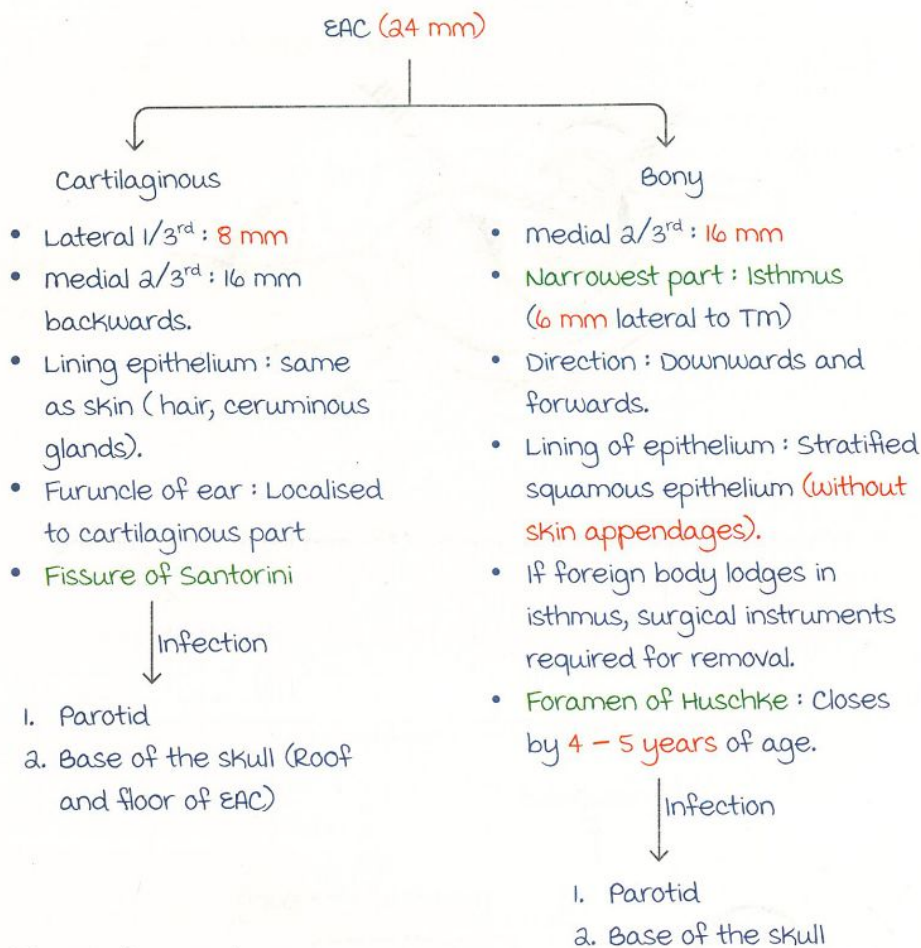 EAC (24 mm)
Cartilaginous
• Lateral 1/3rd : 8 mm
• medial 2/3rd : 16 mm
backwards.
• Lining epithelium : same
as skin (hair, ceruminous
glands).
• Furuncle of ear : Localised
to cartilaginous part
• Fissure of Santorini
Infection
1. Parotid
2. Base of the skull (Roof
and floor of EAC)
Bony
• medial 2/3rd : 16 mm
• Narrowest part : Isthmus
(6 mm lateral to TM)
• Direction : Downwards and
forwards.
• Lining of epithelium : Stratified
squamous epithelium (without
skin appendages).
• If foreign body lodges in
isthmus, surgical instruments
required for removal.
• Foramen of Huschke : Closes
by 4 – 5 years of age.
Infection
1. Parotid
2. Base of the skull